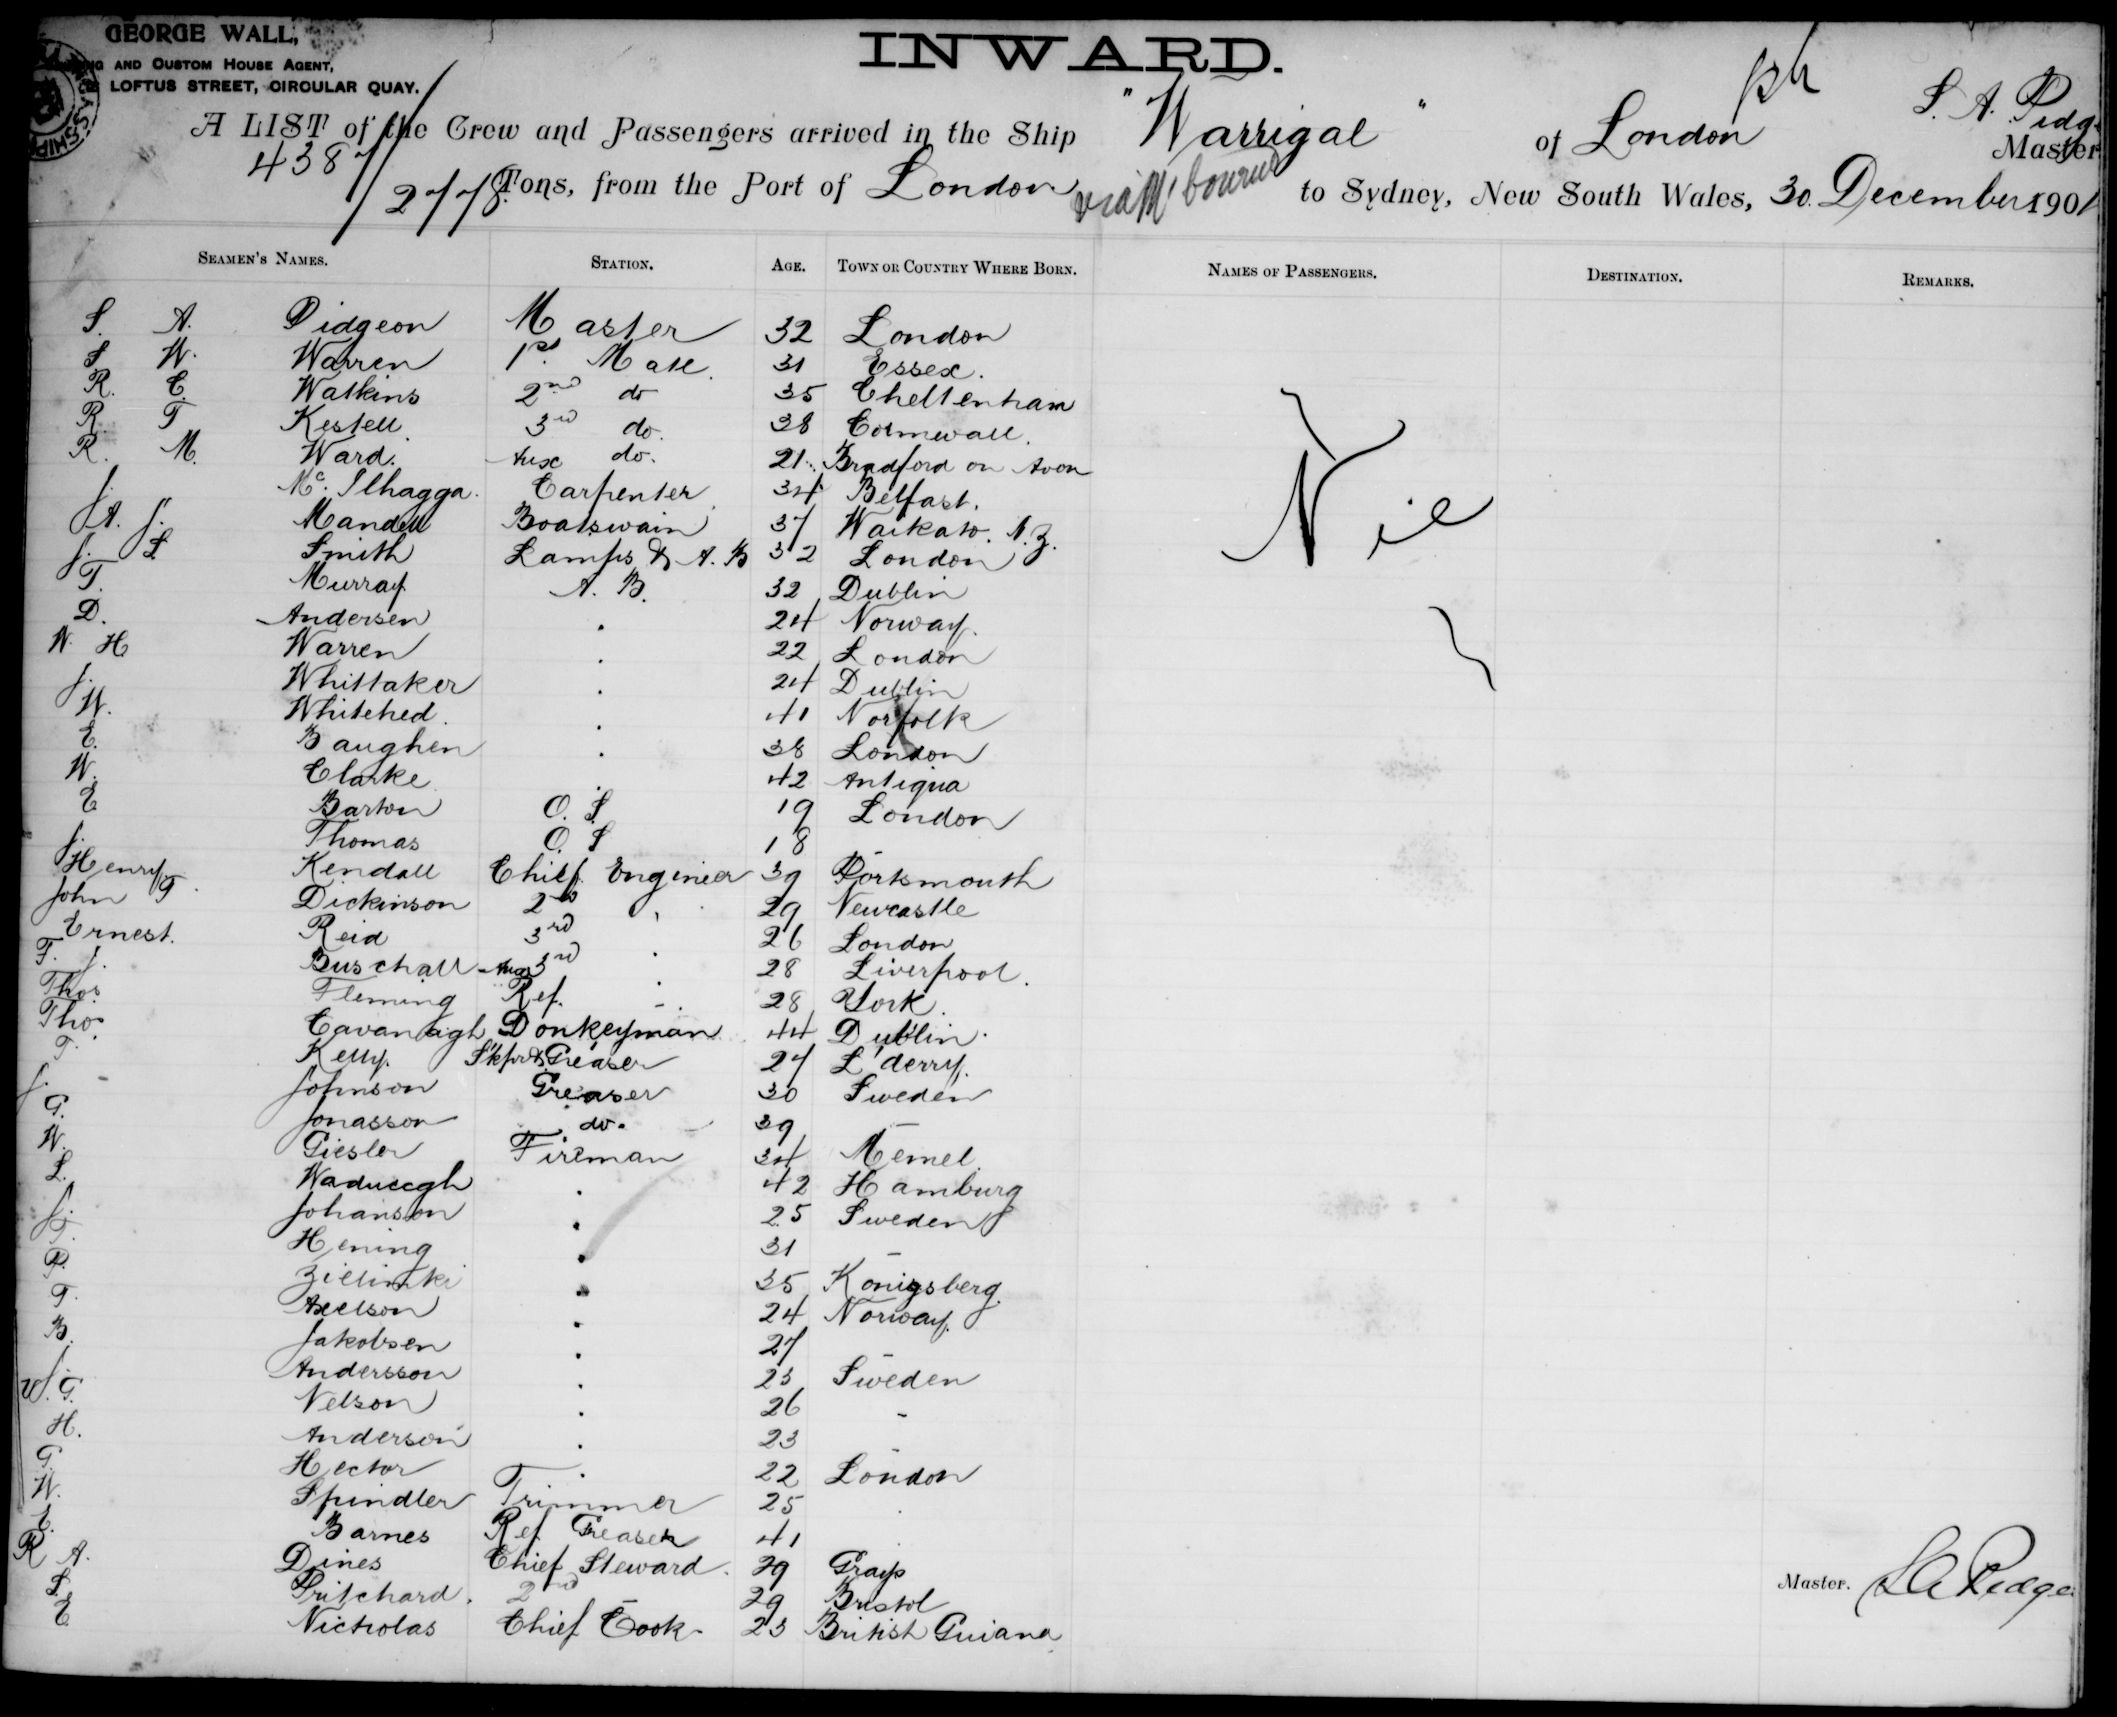 GEORGE WALL,
AND CUSTOM HOUSE AGENT,
LOFTUS STREET, CIRCULAR QUAY.
INWARD.
A LIST of the Crew and Passengers arrived in the Ship "Warrigal" of London S. A. Pidg Master
4387/2778 Tons, from the Port of London via M'bourne to Sydney, New South Wales, 30. December 1901
SEAMEN'S NAMES. STATION. AGE. TOWN OR COUNTRY WHERE BORN. NAMES OF PASSENGERS. DESTINATION. REMARKS.
S. A. Pidgeon Master 32 London
S W. Warren 1st. Mate. 31 Essex.
R. C. Watkins 2nd do 35 Cheltenham
R. T Kestell 3rd do. 38 Cornwall.
R. M. Ward. Aux do. 21. Bradford on Avon
J. Mc. Ilhagga. Carpenter 34 Belfast.
A. J. Mandell Boatswain 37 Waikato. N.Z.
J. S Smith Lamps & A. B 32 London
T. Murray. A. B. 32 Dublin
D. Andersen . 24 Norway.
W. H Warren . 22 London
J. Whittaker . 24 Dublin
W. Whitehed. . 41 Norfolk
E. Baughen . 38 London
W. Clarke . 42 Antigua
E Barton O. S. 19 London
J. Thomas O. S 18 -
Henry Kendall Chief Engineer 39 Portsmouth
John T. Dickinson 2nd " 29 Newcastle
Ernest. Reid 3rd . 26 London
F. J. Buschall Aux 3rd . 28 Liverpool.
Thos Fleming Ref. - 28 York.
Thos Cavanagh Donkeyman 44 Dublin.
T. Kelly. S'kpr & Greaser 27 L'derry.
J. Johnson Greaser 30 Sweden
G. Jonasson do. 39 -
W. Giesler Fireman 34 Memel.
L. . 42 Hamburg
J. Johanson . 25 Sweden
T. Hening . 31 -
P. Zielinski . 35 Konigsberg.
T. Axelson . 24 Norway.
B. Jakobsen . 27 -
J. Andersson . 23 Sweden
G. Nelson . 26 -
H. Anderson . 23 -
G. Hector . 22 London
W. Spindler Trimmer 25 .
E. Barnes Ref. Greaser 41 .
R A. Dines Chief Steward. 29 Grays
S. Pritchard. 2nd - 29 Bristol
E Nicholas Chief Cook 23 British Guiana
Nil
Master. S A Pidge